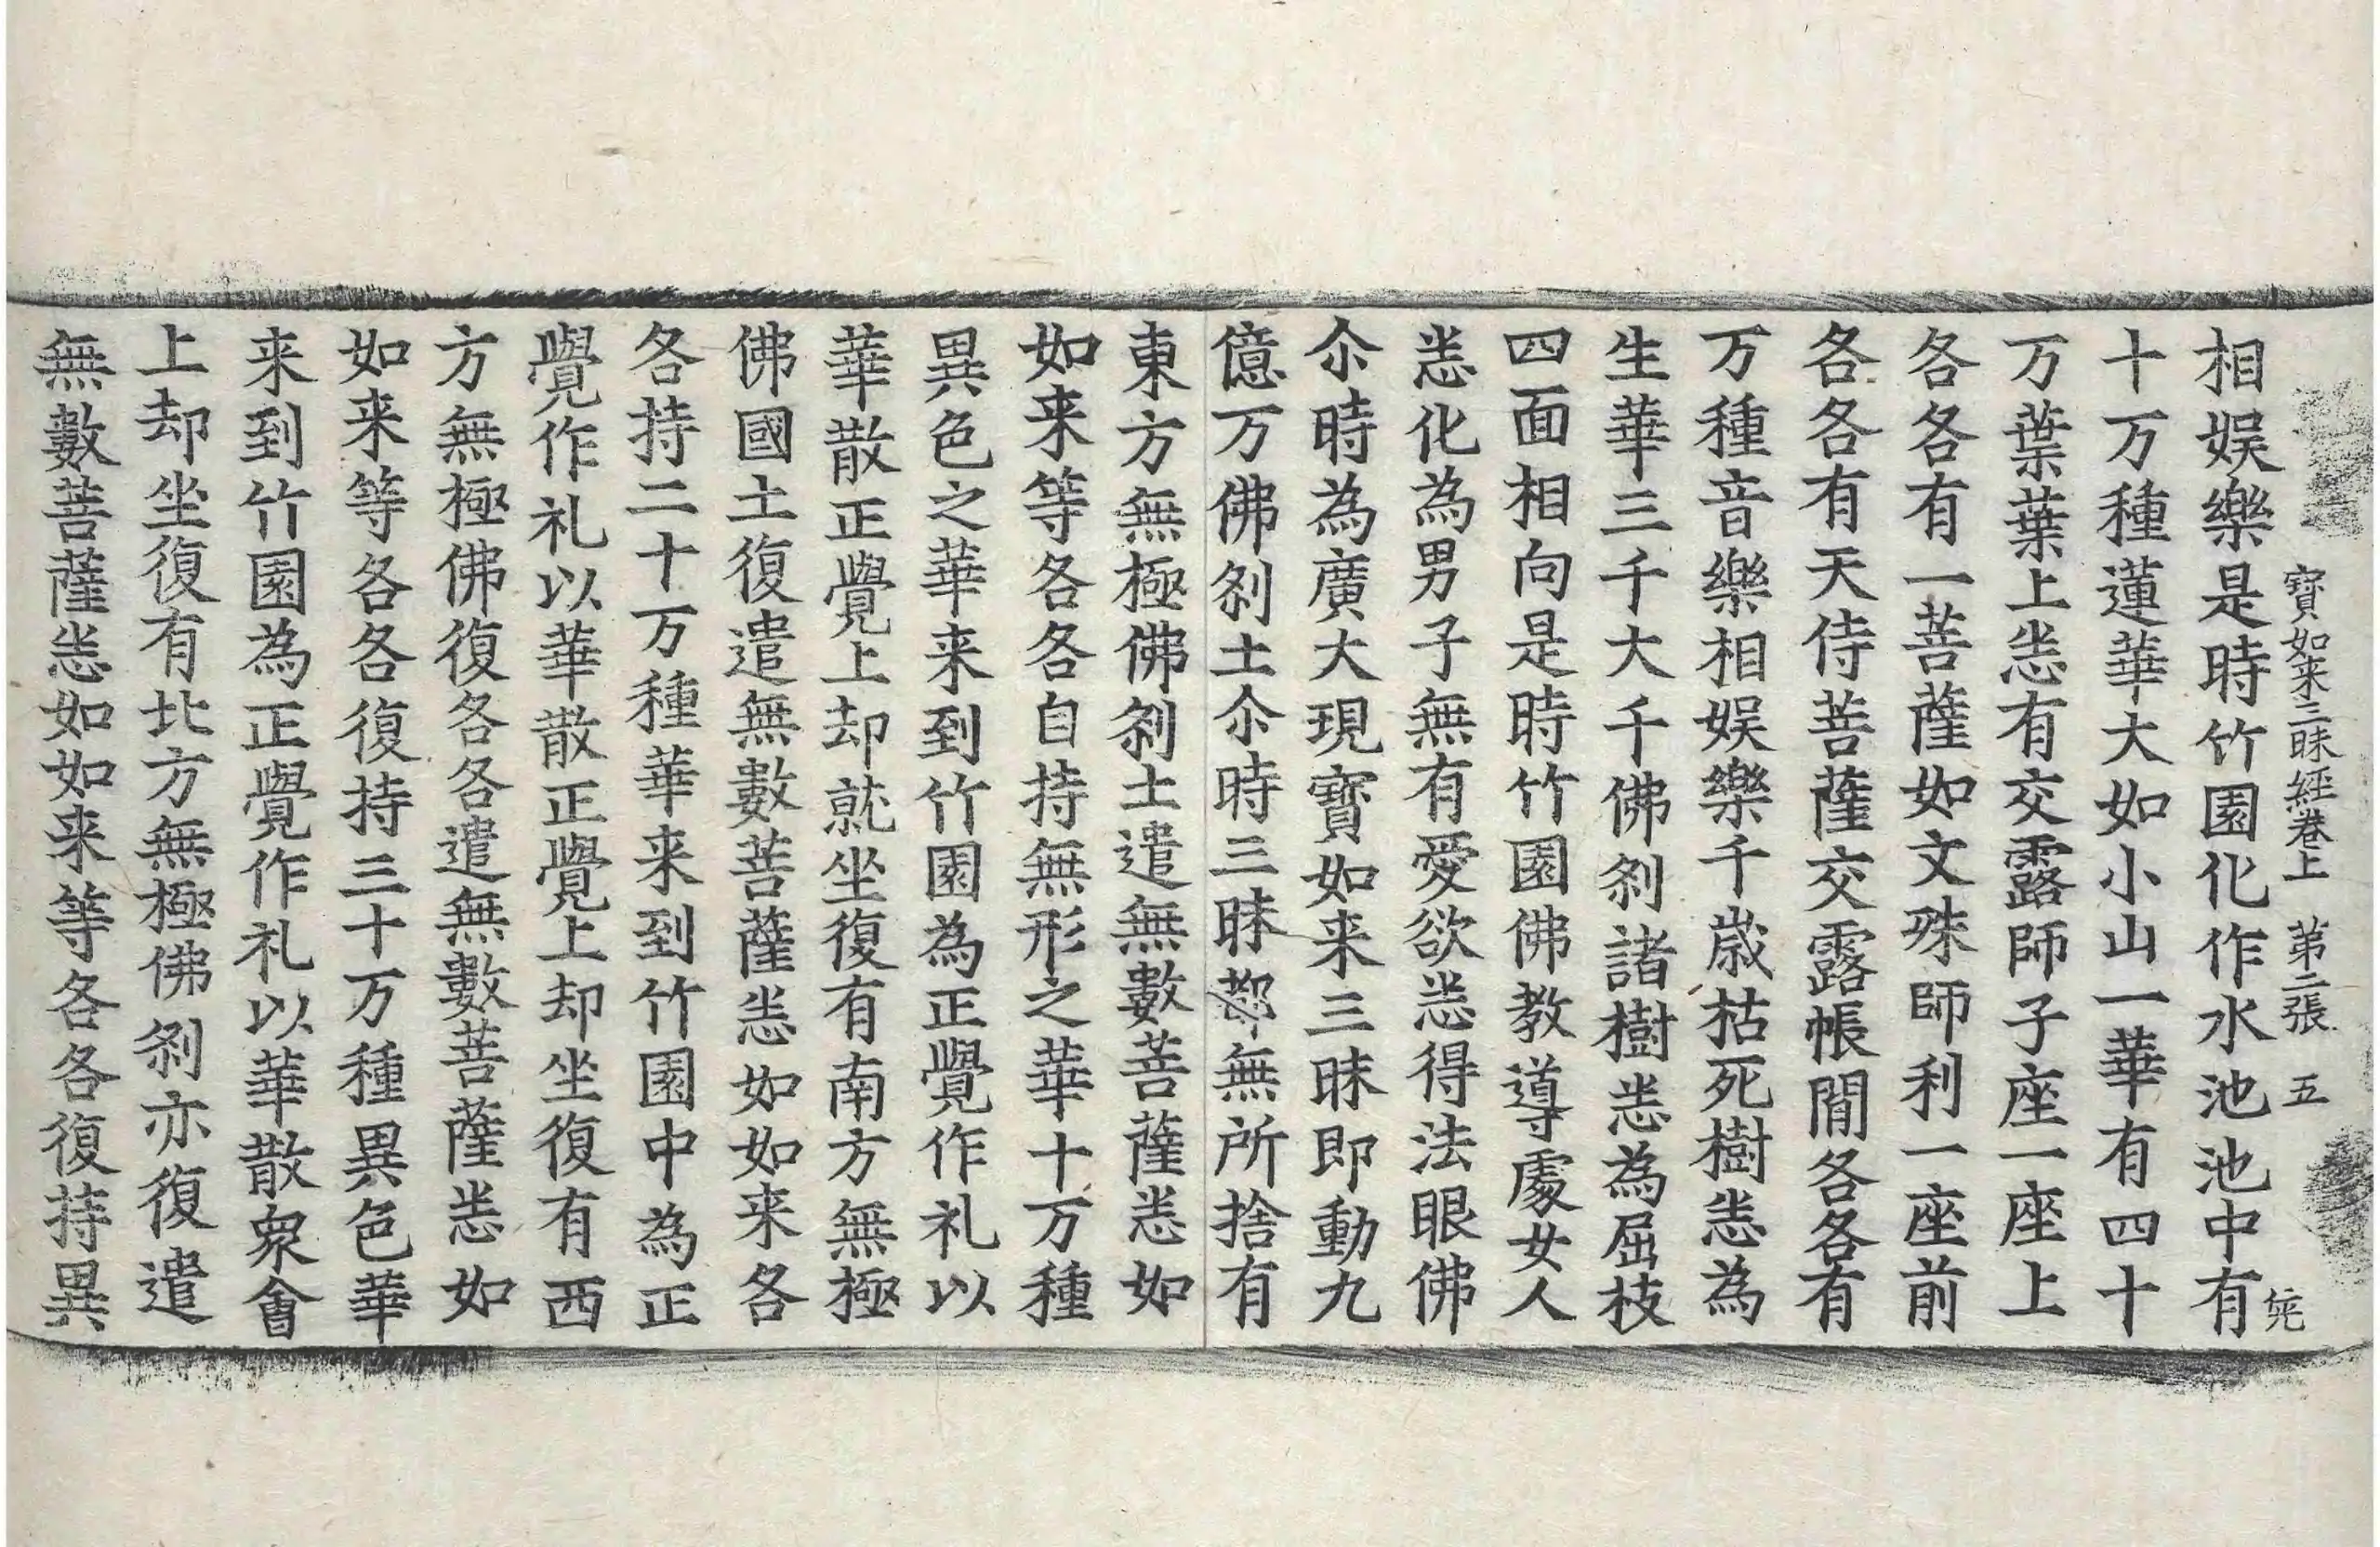 寶如来三昧經卷上 第二張 五
相娱樂是時竹園化作水池池中有
十万種蓮華大如小山一華有四十
万葉葉上悉有交露師子座一座上
各各有一菩薩如文殊師利一座前
各各有天侍菩薩交露帳閒各各有
万種音樂相娱樂千歲枯死樹悉為
生華三千大千佛刹諸樹悉為屈枝
四面相向是時竹園佛教導處女人
悉化為男子無有愛欲悉得法眼佛
尒時為廣大現寶如来三昧即動九
億万佛刹土尒時三昧都無所捨有
東方無極佛刹土遣無數菩薩悉如
如来等各各自持無形之華十万種
異色之華来到竹園為正覺作礼以
華散正覺上却就坐復有南方無極
佛國土復遣無數菩薩悉如如来各
各持二十万種華来到竹園中為正
覺作礼以華散正覺上却坐復有西
方無極佛復各各遣無數菩薩悉如
如来等各各復持三十万種異色華
来到竹園為正覺作礼以華散衆會
上却坐復有北方無極佛刹亦復遣
無數菩薩悉如如来等各各復持異